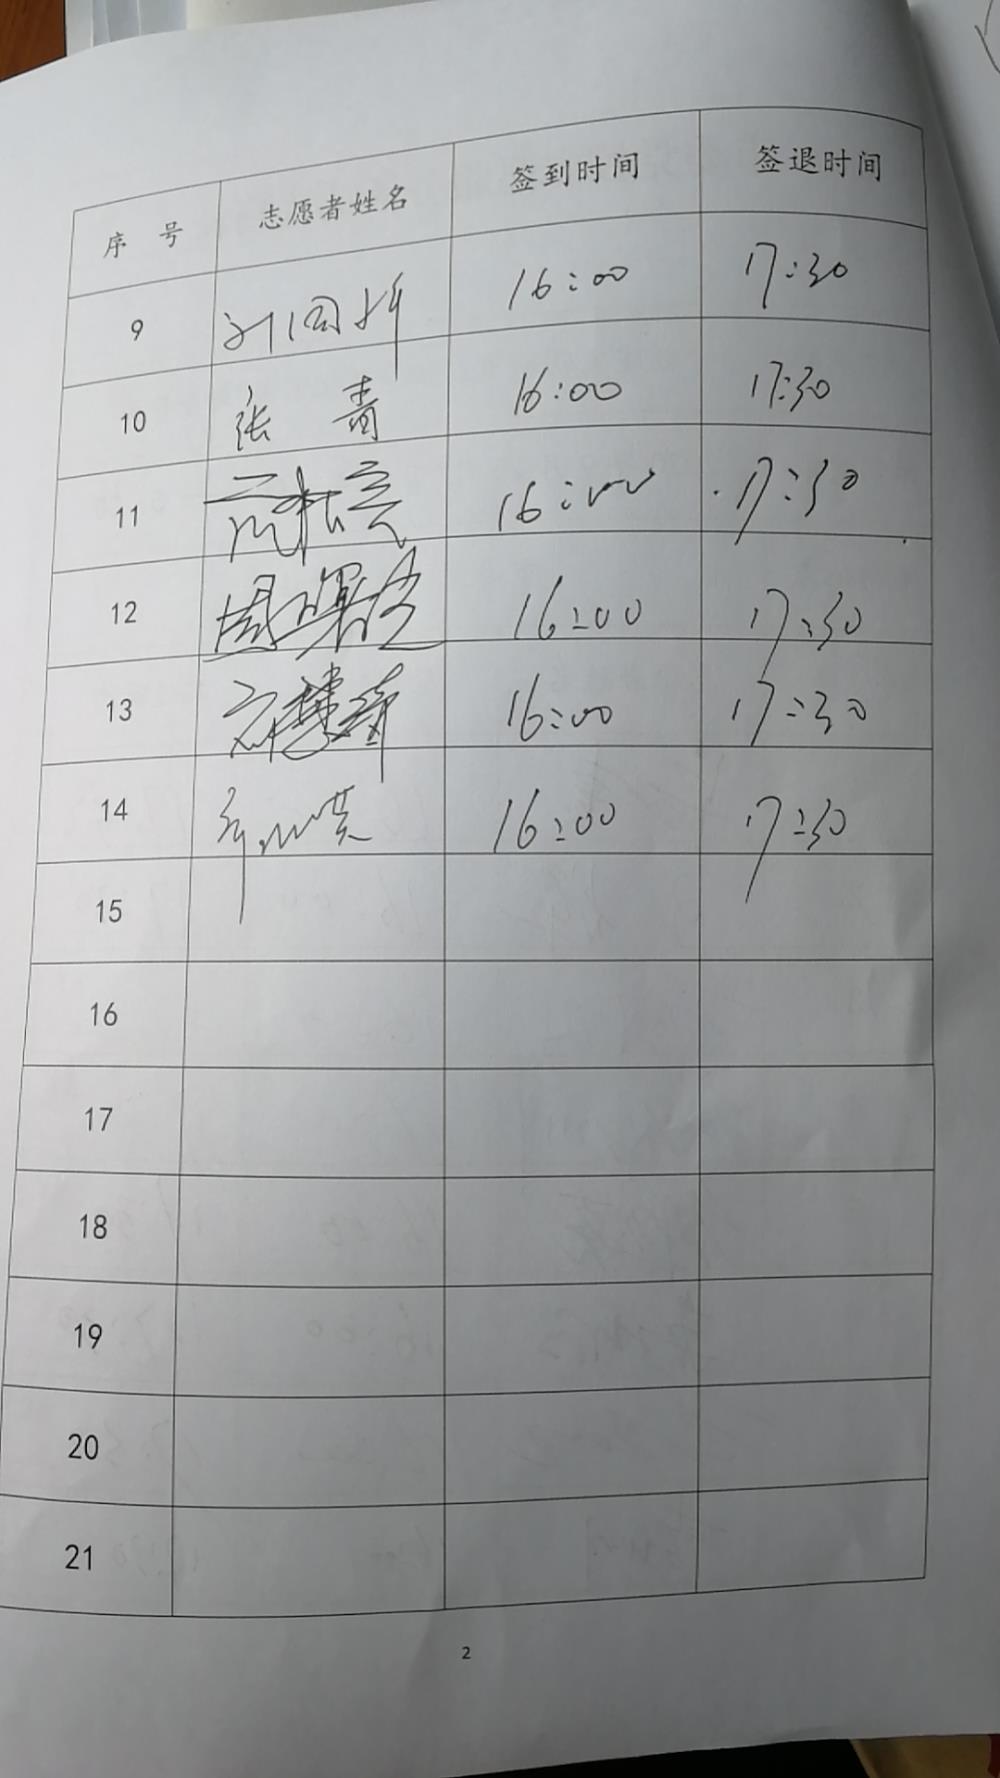 序 号 志愿者姓名 签到时间 签退时间
9 16:00 17:30
10 张青 16:00 17:30
11 16:00 17:30
12 16:00 17:30
13 16:00 17:30
14 16:00 17:30
15
16
17
18
19
20
21
2